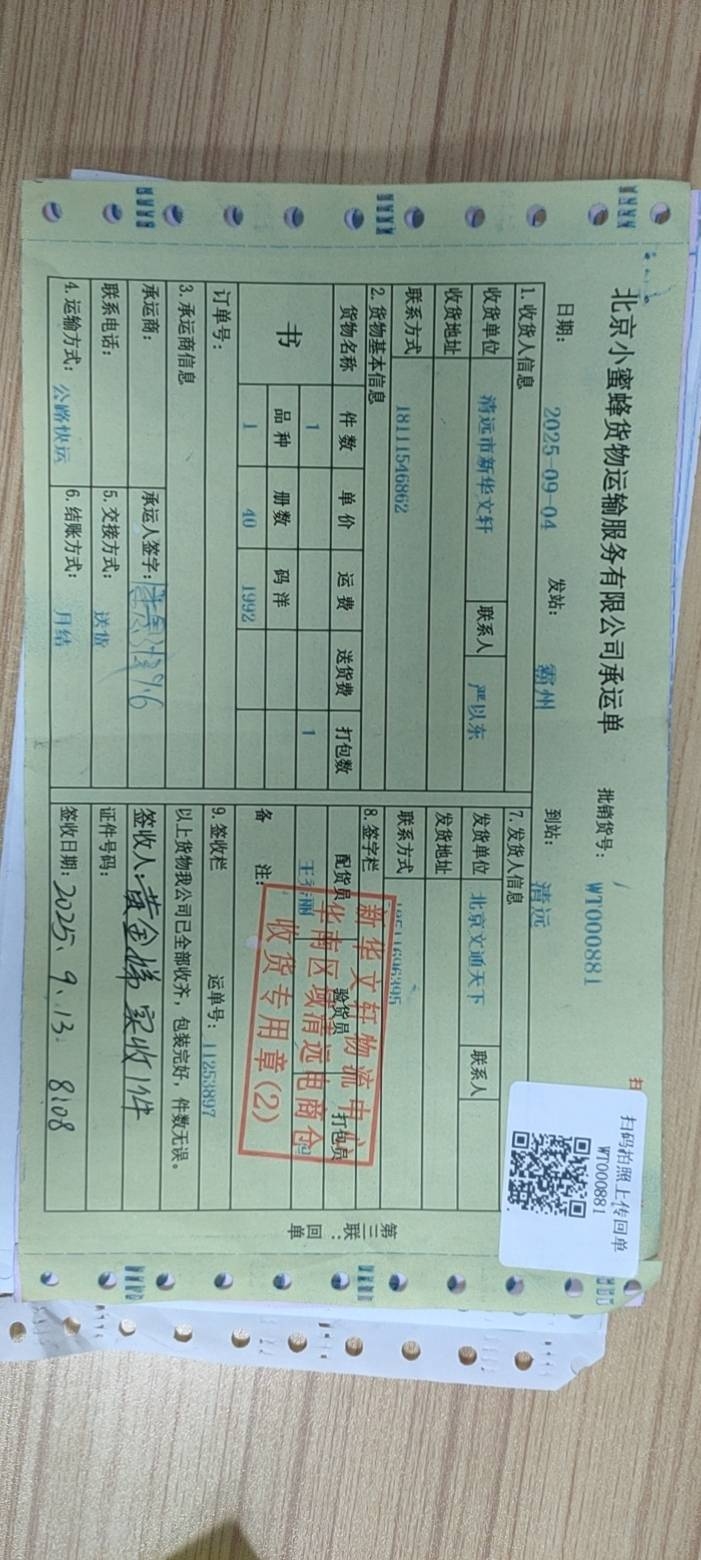 北京小蜜蜂货物运输服务有限公司承运单
批销货号： WT000881
扫码拍照上传回单
WT000881
日期： 2025-09-04 发站： 霸州 到站： 清远
1. 收货人信息
收货单位 清远市新华文轩 联系人 严以东
收货地址
联系方式 18111546862
2. 货物基本信息
货物名称 件数 单价 运费 送货费 打包数
书 1 1
品种 册数 码洋
1 40 1992
订单号：
3. 承运商信息
承运商： 承运人签字：
联系电话： 5. 交接方式： 送货
4. 运输方式： 公路快运 6. 结账方式： 月结
7. 发货人信息
发货单位 北京文通天下 联系人
发货地址
联系方式
8. 签字栏
配货员 验货员 打包员
备 注：
新华文轩物流中心
华南区域清远电商仓
收货专用章(2)
9. 签收栏 运单号： 11253897
以上货物我公司已全部收齐，包装完好，件数无误。
签收人：黄金娣 实收1件
证件号码：
签收日期：2025、9、13. 8:08
第三联：回单